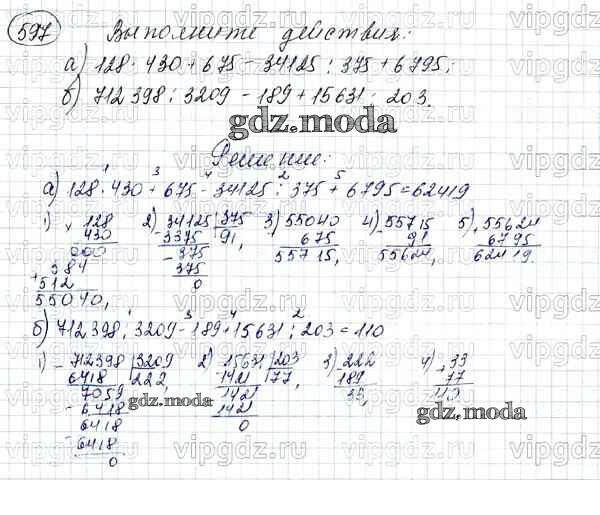 597 Выполните действия:
а) 128 · 430 + 675 - 34125 : 375 + 6795;
б) 712398 : 3209 - 189 + 15631 : 203.
gdz.moda
Решение:
1 3 4 2 5
а) 128 · 430 + 675 - 34125 : 375 + 6795 = 62419
1) × 128 2) 34125 | 375 3) 55040 4) 55715 5) + 55624
430 - 3375 | 91, 675 91 6795
000 - 375 55715, 55624, 62419.
384 375
+ 512 0
55040,
1 3 4 2
б) 712398 : 3209 - 189 + 15631 : 203 = 110
1) - 712398 | 3209 2) 15631 | 203 3) 222 4) + 33
6418 | 222, 1421 | 77, 189 77
7059 1421 33, 110
- 6418 1421
6418 0
- 6418
0
gdz.moda
gdz.moda